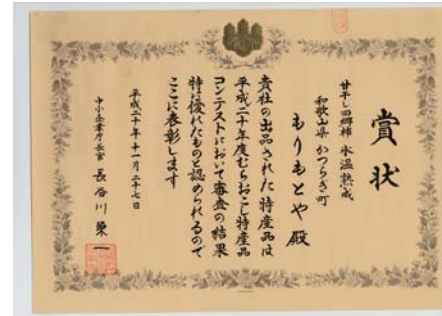 賞状
甘干し四郷柿 氷温熟成
和歌山県 かつらぎ町
もりもとや 殿
貴社の出品された特産品は
平成二十年度むらおこし特産品
コンテストにおいて審査の結果
特に優れたものと認められるので
ここに表彰します
平成二十年十一月二十七日
中小企業庁長官 長谷川榮一